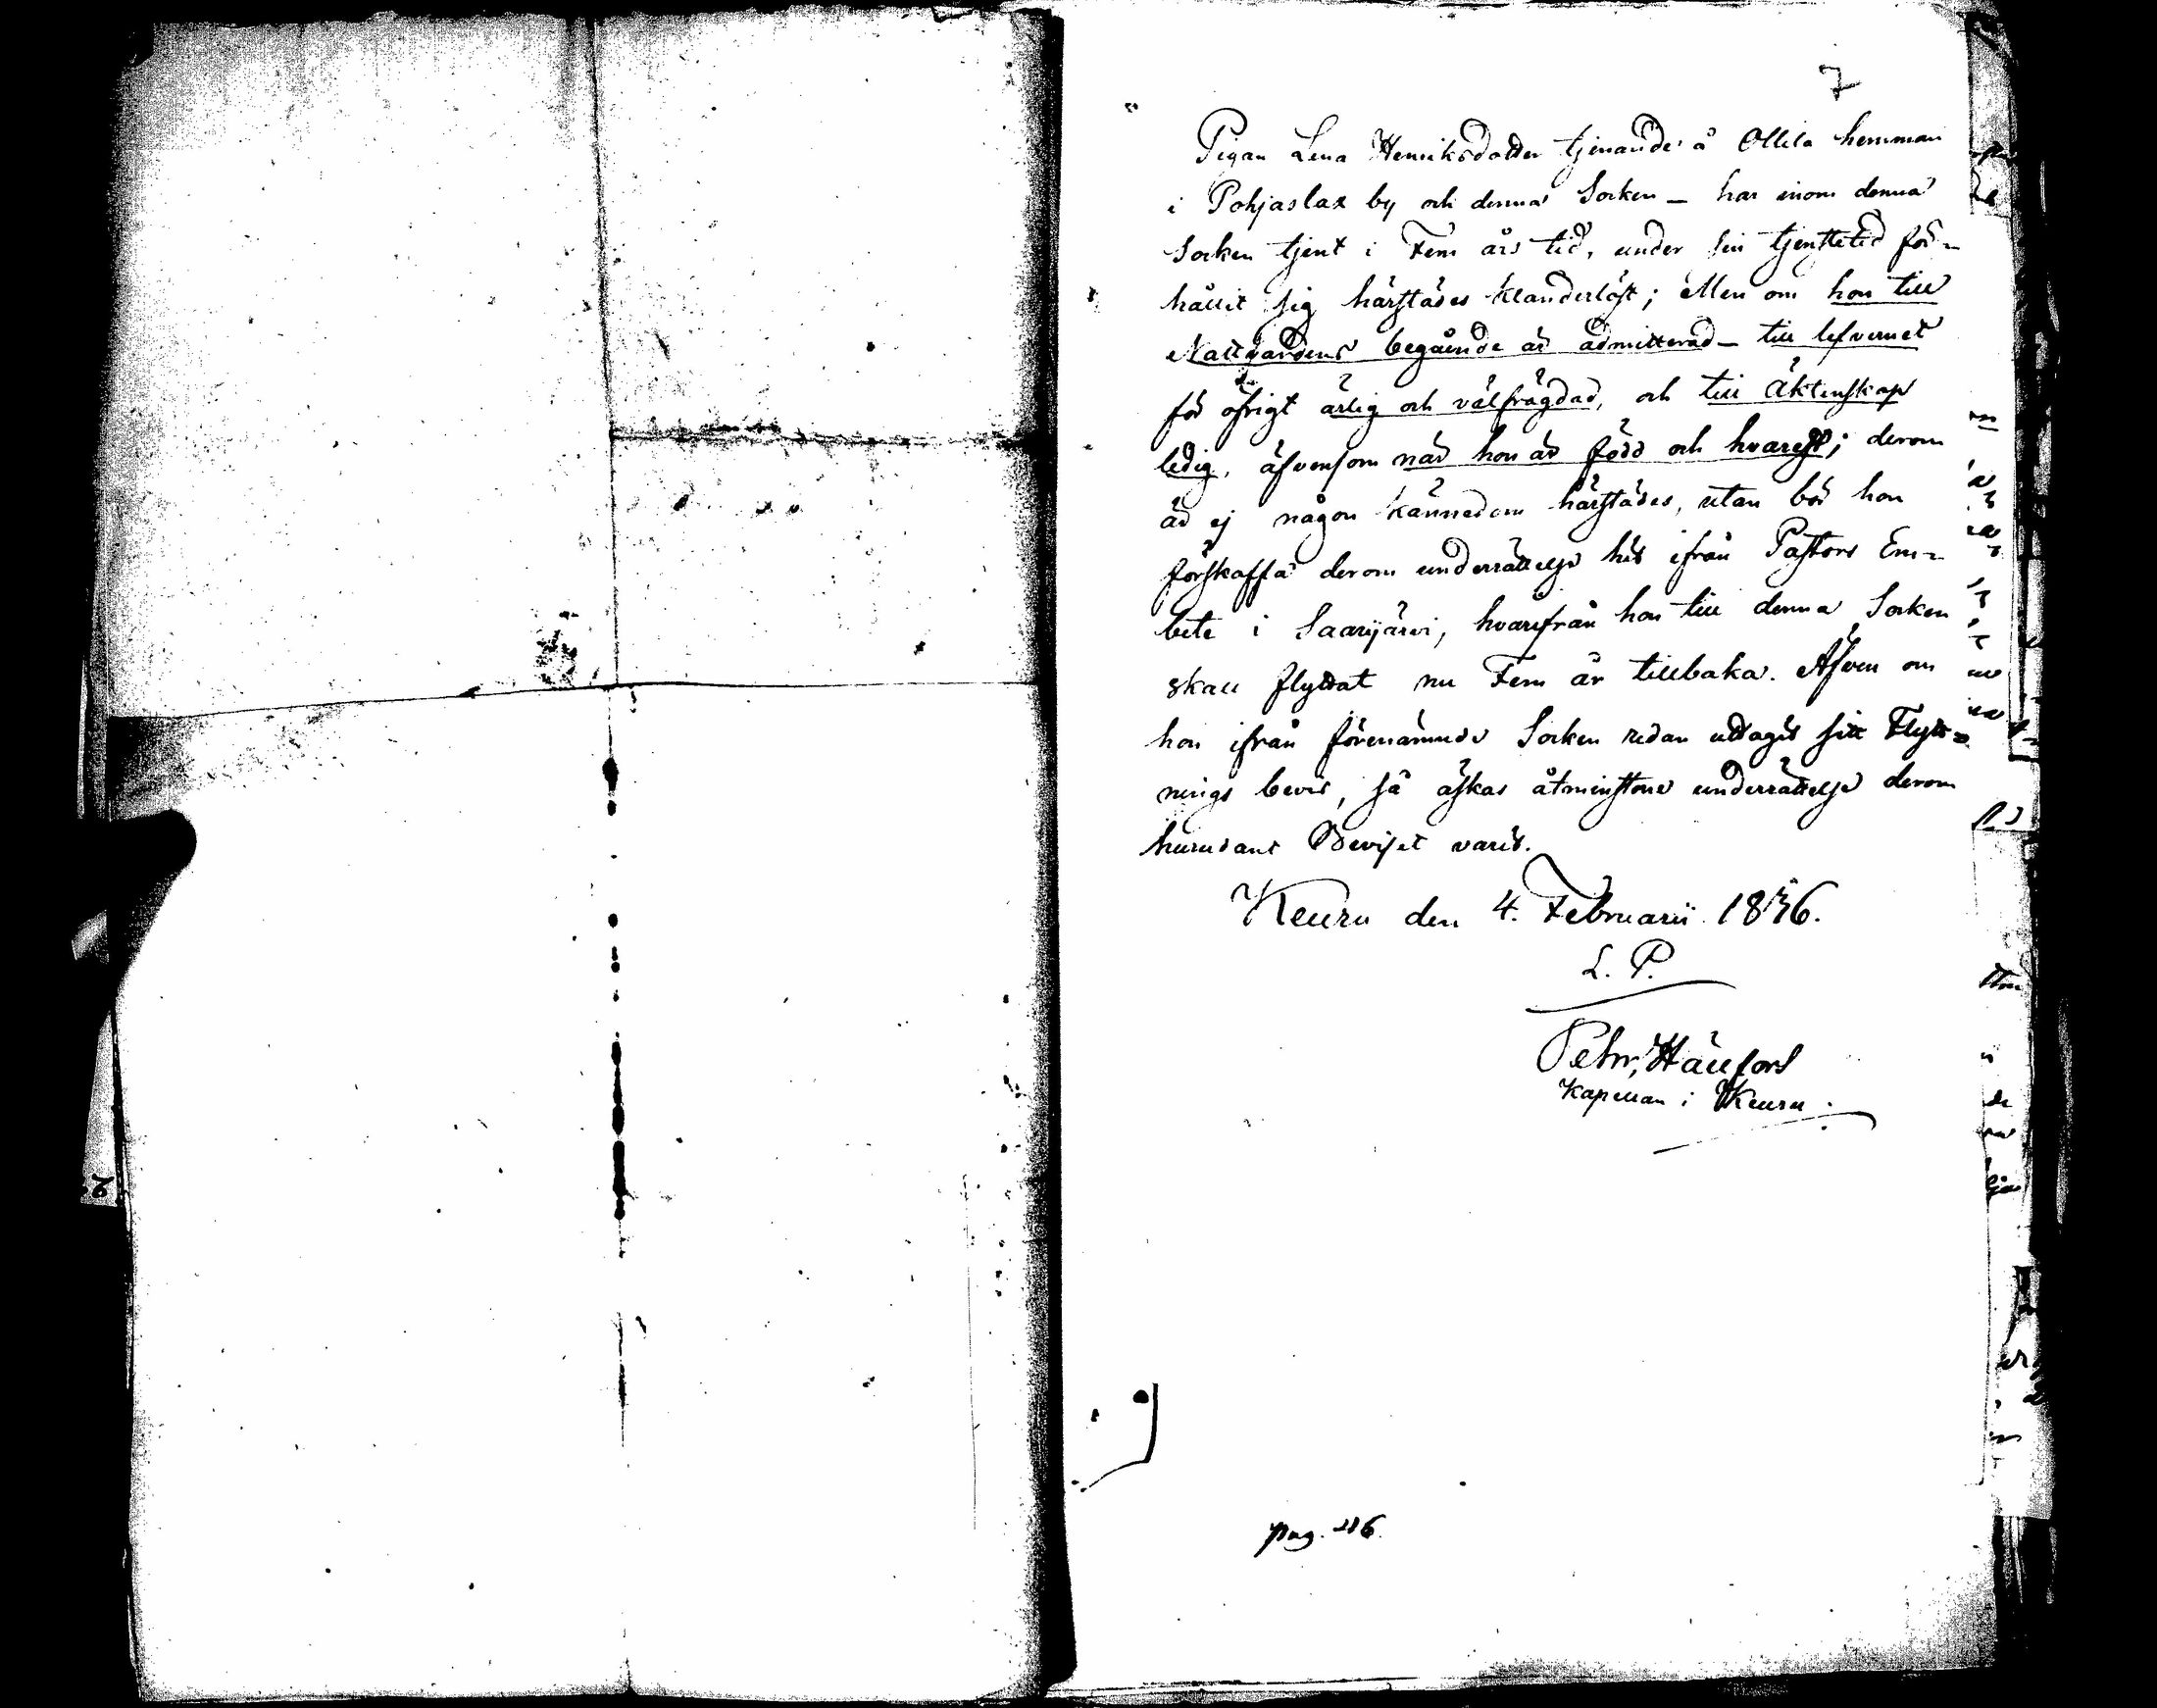 7
Pigan Lena Henriksdotter tjenande å Ollila hemman
i Pohjaslax by och denna Socken – har inom denna
Socken tjent i Fem års tid, under sin tjenstetid för-
hållit sig härstädes klanderlöst; Men om hon till
Nattvardens begående är admitterad – till lefvernet
för öfrigt ärlig och välfrägdad, och till Äktenskap
ledig, äfvensom när hon är född och hvarest; derom
är ej någon kännedom härstädes, utan bör hon
förskaffa derom underrättelse hit ifrån Pastors Em-
bete i Saarijärvi, hvarifrån hon till denna Socken
skall flyttat nu Fem år tillbaka. Äfven om
hon ifrån förenämnde Socken redan uttagit sitt Flytt-
nings bevis, så äskas åtminstone underrättelse derom
hurudant Beviset varit.
Keuru den 4. Februarii 1836.
L. P.
Pehr Hällfors
Kapellan i Keuru.
pag.